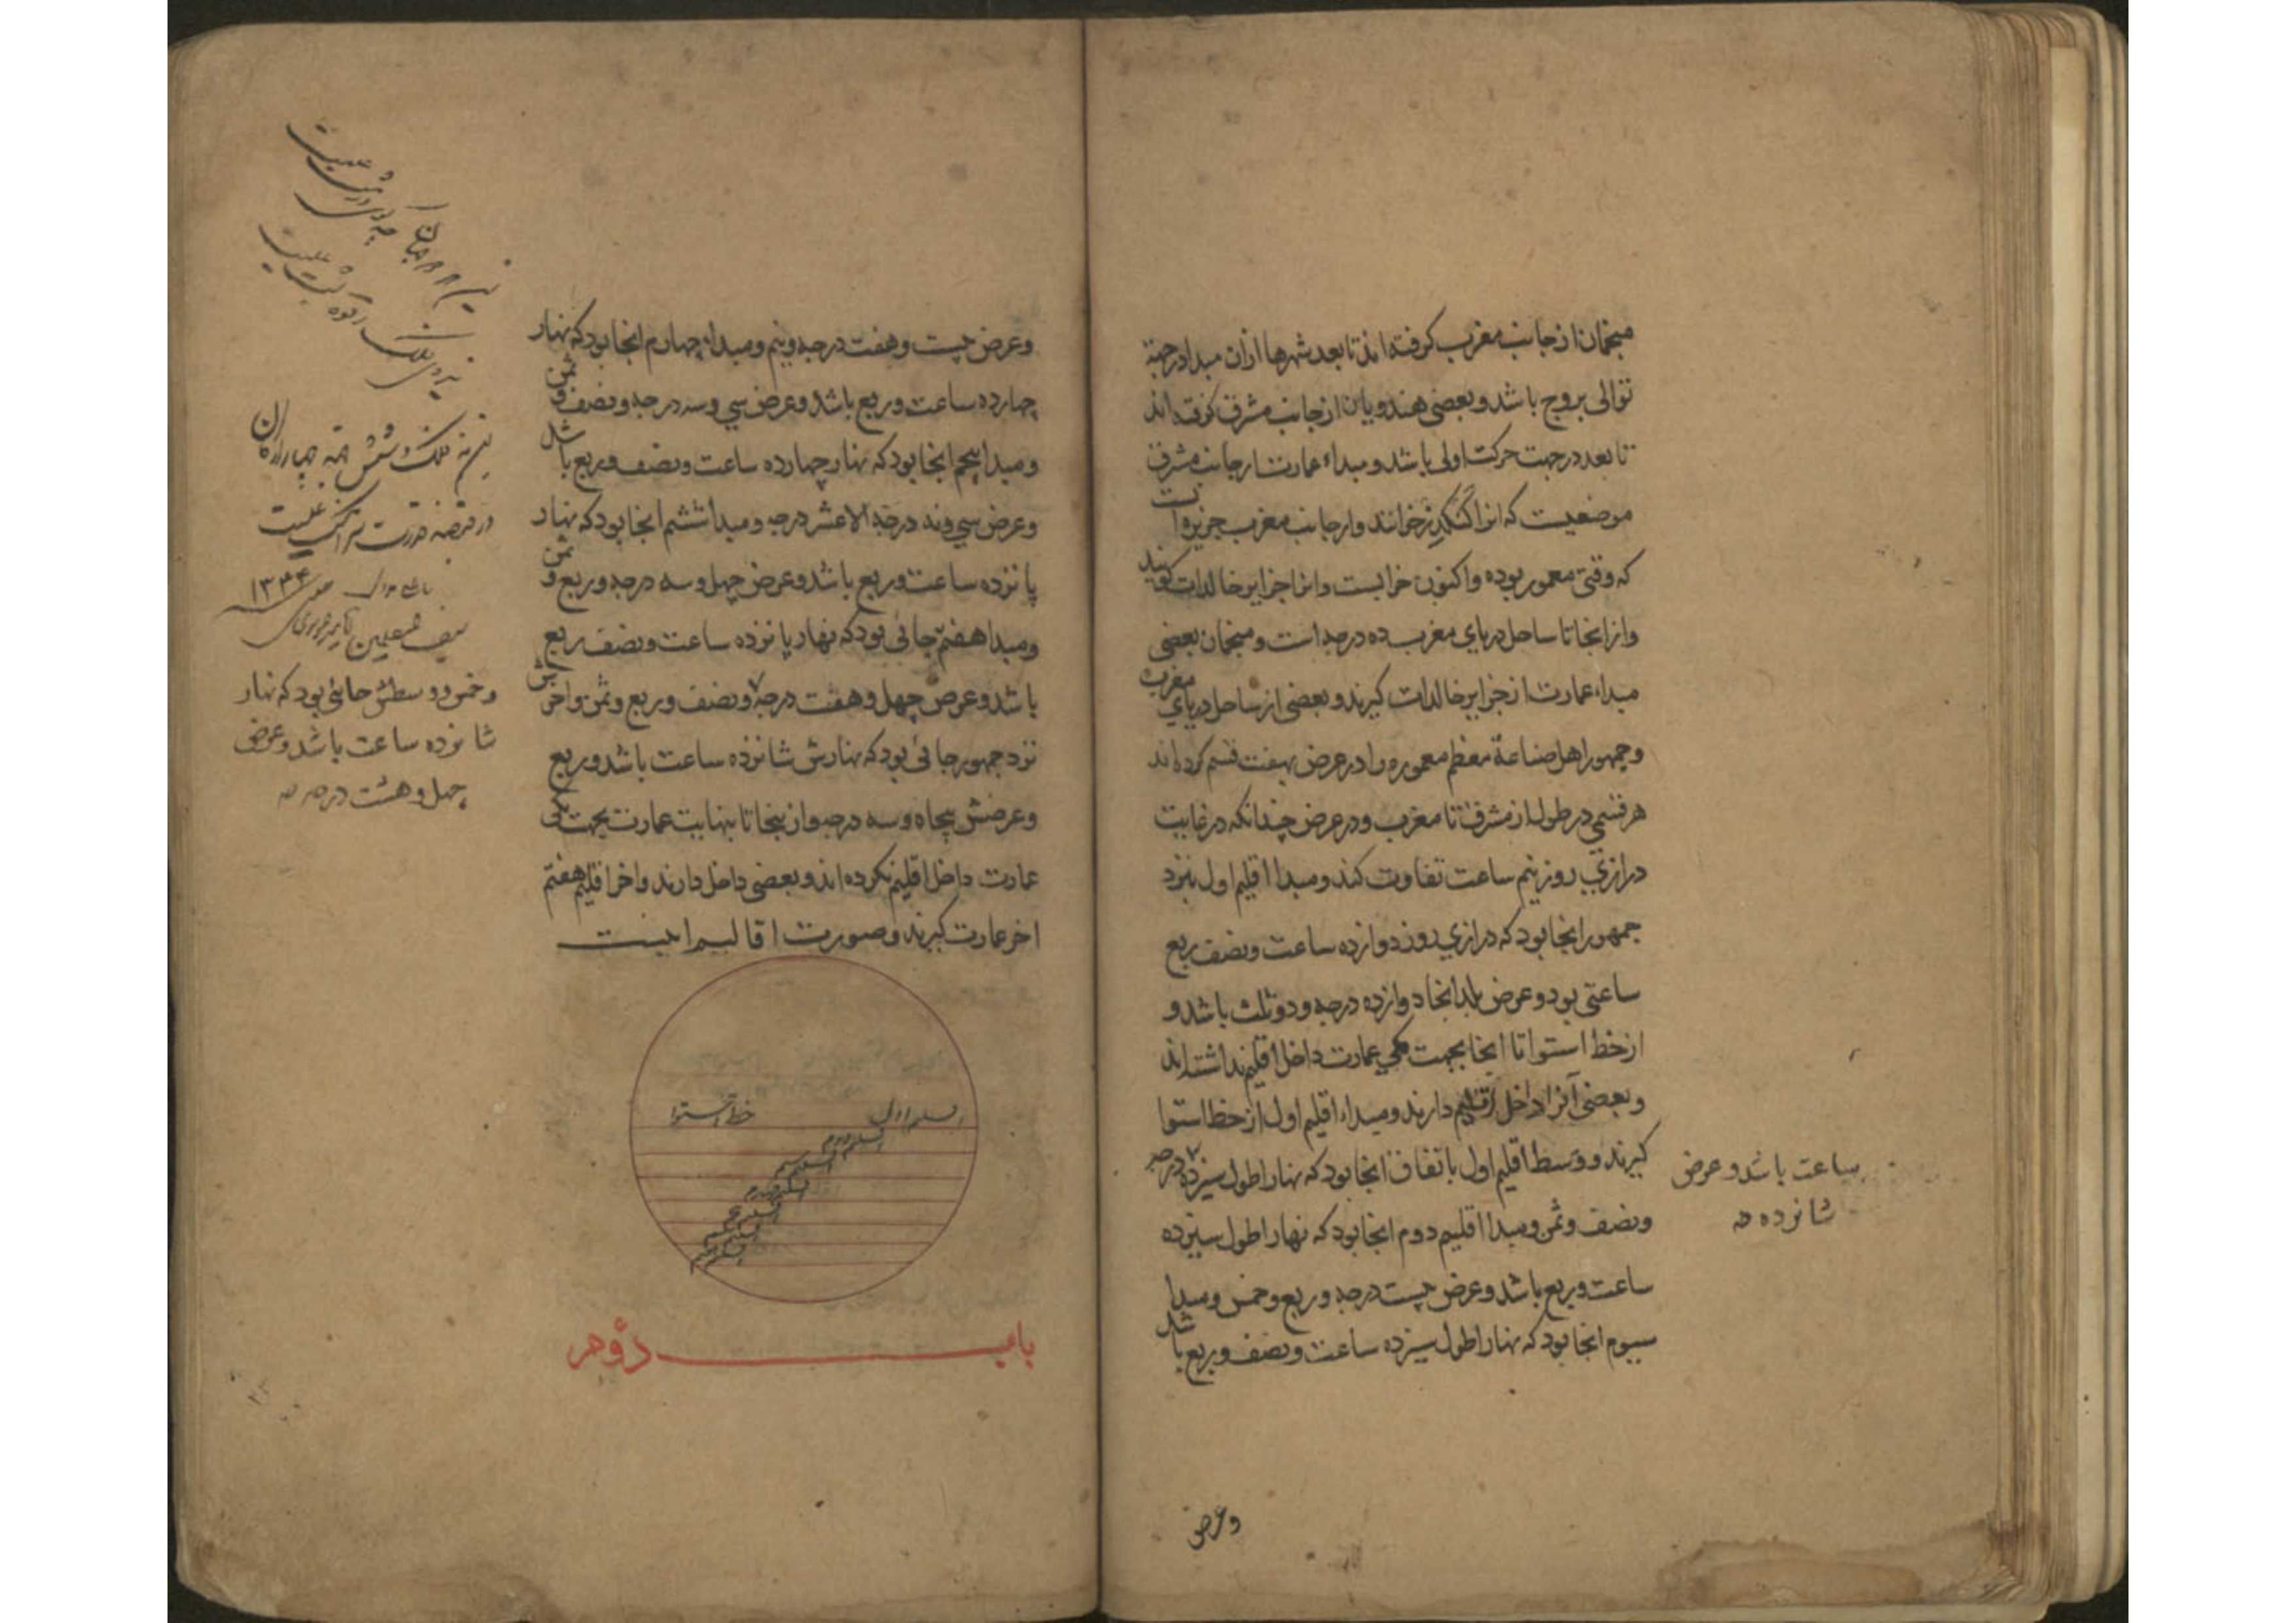 منجمان از جانب مغرب کرفته اند تا بعد شهرها ازان مبدا در جهة
توالی بروج باشد و بعضی هندویان از جانب مشرق کرفته اند
تا بعد در جهت حرکت اولی باشد و مبداء عمارت از جانب مشرق
موضعیست که انرا کنکدز خوانند و از جانب مغرب جزیره است
که وقتی معمور بوده و اکنون خرابست و انرا جزایر خالدات کویند
و از انجا تا ساحل دریای مغرب ده درجه است و منجمان بعضی
مبداء عمارت از جزایر خالدات کیرند و بعضی از ساحل دریای مغرب
و جمهور اهل صناعة معظم معموره را در عرض بهفت قسم کرده اند
هر قسمی در طول از مشرق تا مغرب و در عرض چندانکه در غایت
درازی روز نیم ساعت تفاوت کند و مبدا اقلیم اول نزد
جمهور انجا بود که درازی روز دوازده ساعت و نصف ربع
ساعتی بود و عرض بلد انجا دوازده درجه و دو ثلث باشد و
از خط استوا تا انجا بجهت کمی عمارت داخل اقلیم نداشته اند
و بعضی آنرا داخل اقلیم دارند و مبداء اقلیم اول از خط استوا
کیرند و وسط اقلیم اول باتفاق انجا بود که نهار اطول سیزده درجه
ساعت باشد و عرض
شانزده
و نصف و ثمن و مبدا اقلیم دوم انجا بود که نهار اطول سیزده
ساعت و ربع باشد و عرض بیست درجه و ربع و خمس و مبدا
سیوم انجا بود که نهار اطول سیزده ساعت و نصف و ربع باشد
و عرض
و عرض بیست و هفت درجه و نیم و مبداء چهارم انجا بود که نهار
چهارده ساعت و ربع باشد و عرض سی و سه درجه و نصف و ثمن
و مبدا پنجم انجا بود که نهار چهارده ساعت و نصف و ربع باشد
و عرض سی و نه درجه الا عشر درجه و مبدا ششم انجا بود که نهار
پانزده ساعت و ربع باشد و عرض چهل و سه درجه و ربع و ثمن
و مبدا هفتم جائی بود که نهار پانزده ساعت و نصف ربع
باشد و عرض چهل و هفت درجه و نصف و ربع و ثمن و اخرش
نزد جمهور جائی بود که نهارش شانزده ساعت باشد و ربع
و عرضش پنجاه و سه درجه و از ینجا تا بنهایت عمارت بجهت کمی
عمارت داخل اقلیم نکرده اند و بعضی داخل دارند و اخر اقلیم هفتم
اخر عمارت کیرند و صورت اقالیم اینست
خط استوا
اقلیم اول
اقلیم دوم
باب دوم
۱۳۳۴
و خمس و وسطش جائی بود که نهار
شانزده ساعت باشد و عرض
چهل و هشت درجه